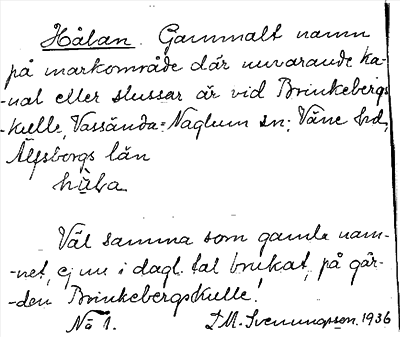 Hålan. Gammalt namn
på markområde där nuvarande ka-
nal eller slussar är vid Brinkebergs
-kulle, Vassända=Naglum sn; Väne hd,
Älfsborgs län
hùla
Väl samma som gamla nam-
-net, ej nu i dagl. tal brukat, på går-
-den Brinkebergskulle!
No 1. I.M. Svenungsson. 1936